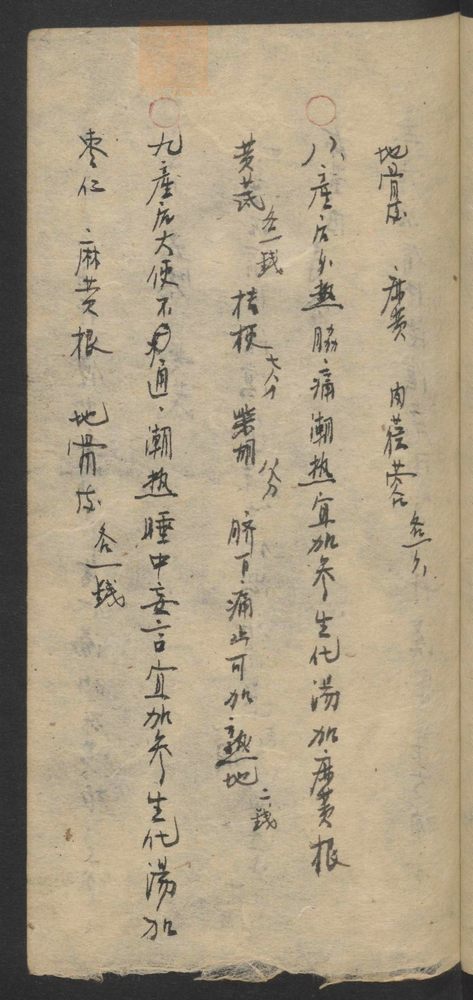 地骨皮 麻黄 肉蓯蓉 各一分
八、產后外熱腸痛潮熱宜加參生化湯加麻黄根
黄芪 各一錢 桔梗 七分 柴胡 八分 臍下痛止可加熟地 二錢
九產后大便不通、潮熱睡中妄言宜加參生化湯加
棗仁 麻黄根 地骨皮 各一錢